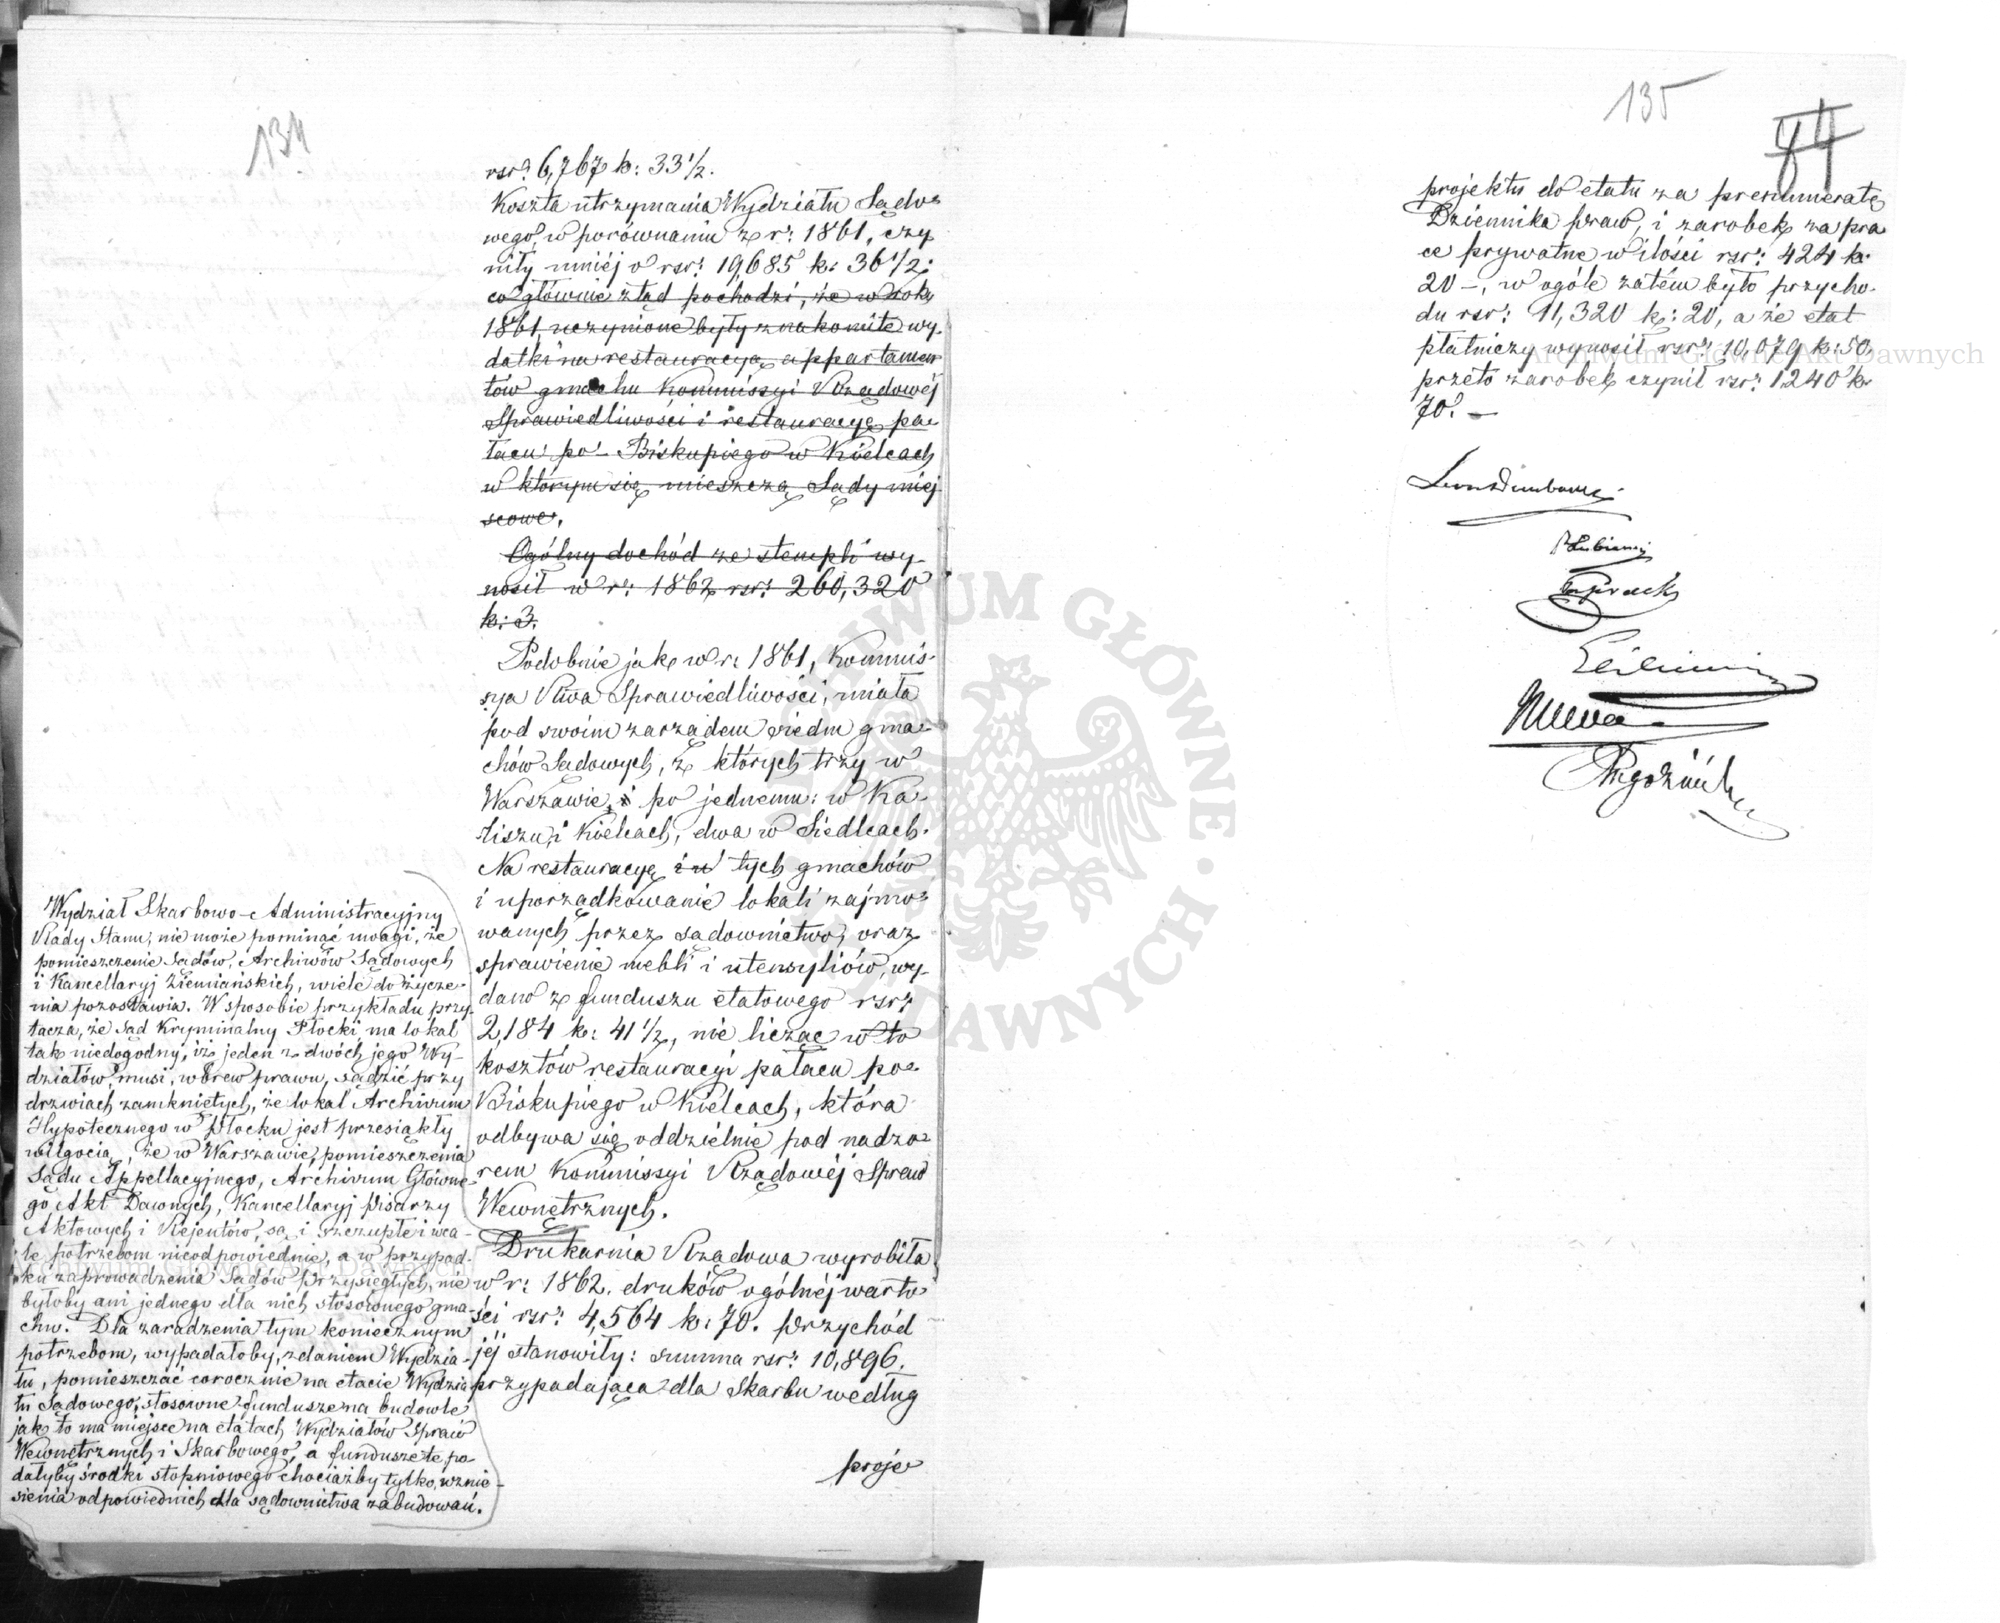 134
rsr: 6,767 k: 33 1/2.
Koszta utrzymania Wydziału Sądo-
wego, w porównaniu z r: 1861, czy
niły mniéj o rsr: 19,685 k: 36 1/2;
co głównie ztąd pochodzi, że w roku
1861, uczynione były znakomite wy-
datki na restauracyą appartamen
tów gmachu Kommissyi Rządowéj
Sprawiedliwości i restauracyę pa-
łacu po-Biskupiego w Kielcach
w którym się mieszczą Sądy miej
scowe.
Ogólny dochód ze stempli wy-
nosił w r: 1862 rsr: 260,320
k: 3.
Podobnie jak w r: 1861, Kommis-
sya Rwa Sprawiedliwości, miała
pod swoim zarządem siedm gma-
chów Sądowych, z których trzy w
Warszawie, i po jednemu: w Ka-
liszu, i Kielcach, dwa w Siedlcach.
Na restauracyę tych gmachów
i uporządkowanie lokali zajmo-
wanych przez sądownictwo, oraz
sprawienie mebli i utensyliów, wy-
dano z funduszu etatowego rsr:
2,184 k: 41 1/2, nie licząc w to
kosztów restauracyi pałacu po-
Biskupiego w Kielcach, która
odbywa się oddzielnie pod nadzo-
rem Kommissyi Rządowéj Spraw
Wewnętrznych.
Drukarnia Rządowa wyrobiła
w r: 1862. druków ogólnéj warto-
ści rsr: 4,564 k: 70. Przychód
jéj stanowiły: summa rsr: 10,896.
przypadająca dla Skarbu według
proje
Wydział Skarbowo-Administracyjny
Rady Stanu, nie może pominąć uwagi, że
pomieszczenie Sądów, Archiwów Sądowych
i Kancellaryj Ziemiańskich, wiele do życze-
nia pozostawia. W sposobie przykładu przy
tacza, że Sąd Kryminalny Płocki ma lokal
tak niedogodny, iż jeden z dwóch jego Wy-
działów, musi, wbrew prawu, sądzić przy
drzwiach zamkniętych, że lokal Archivum
Hypotecznego w Płocku jest przesiąkły
wilgocią, że w Warszawie, pomieszczenia
Sądu Appellacyjnego, Archivum Główne-
go Akt Dawnych, Kancellaryj Pisarzy
Aktowych i Rejentów, są i szczupłe i wca-
le potrzebom nieodpowiednie, a w przypad-
ku zaprowadzenia Sądów Przysięgłych, nie
byłoby ani jednego dla nich stosownego gma-
chu. Dla zaradzenia tym koniecznym
potrzebom, wypadałoby, zdaniem Wydzia-
łu, pomieszczać corocznie na etacie Wydzia
łu Sądowego, stosowne fundusze na budowle
jak to ma miejsce na etatach Wydziałów Spraw
Wewnętrznych i Skarbowego, a fundusze te po-
dałyby środki stopniowego chociażby tylko, wznie-
sienia odpowiednich dla sądownictwa zabudowań.
135
84
projektu do etatu za prenumeratę
Dziennika praw, i zarobek za pra
ce prywatne w ilości rsr: 424 k:
20 –, w ogóle zatém było przycho-
du rsr: 11,320 k: 20, a że etat
płatniczy wynosił rsr: 10,079 k: 50,
przeto zarobek czynił rsr: 1240 k:
70. –
Archiwum Główne Akt Dawnych
ARCHIWUM GŁÓWNE AKT DAWNYCH
Archiwum Główne Akt Dawnych